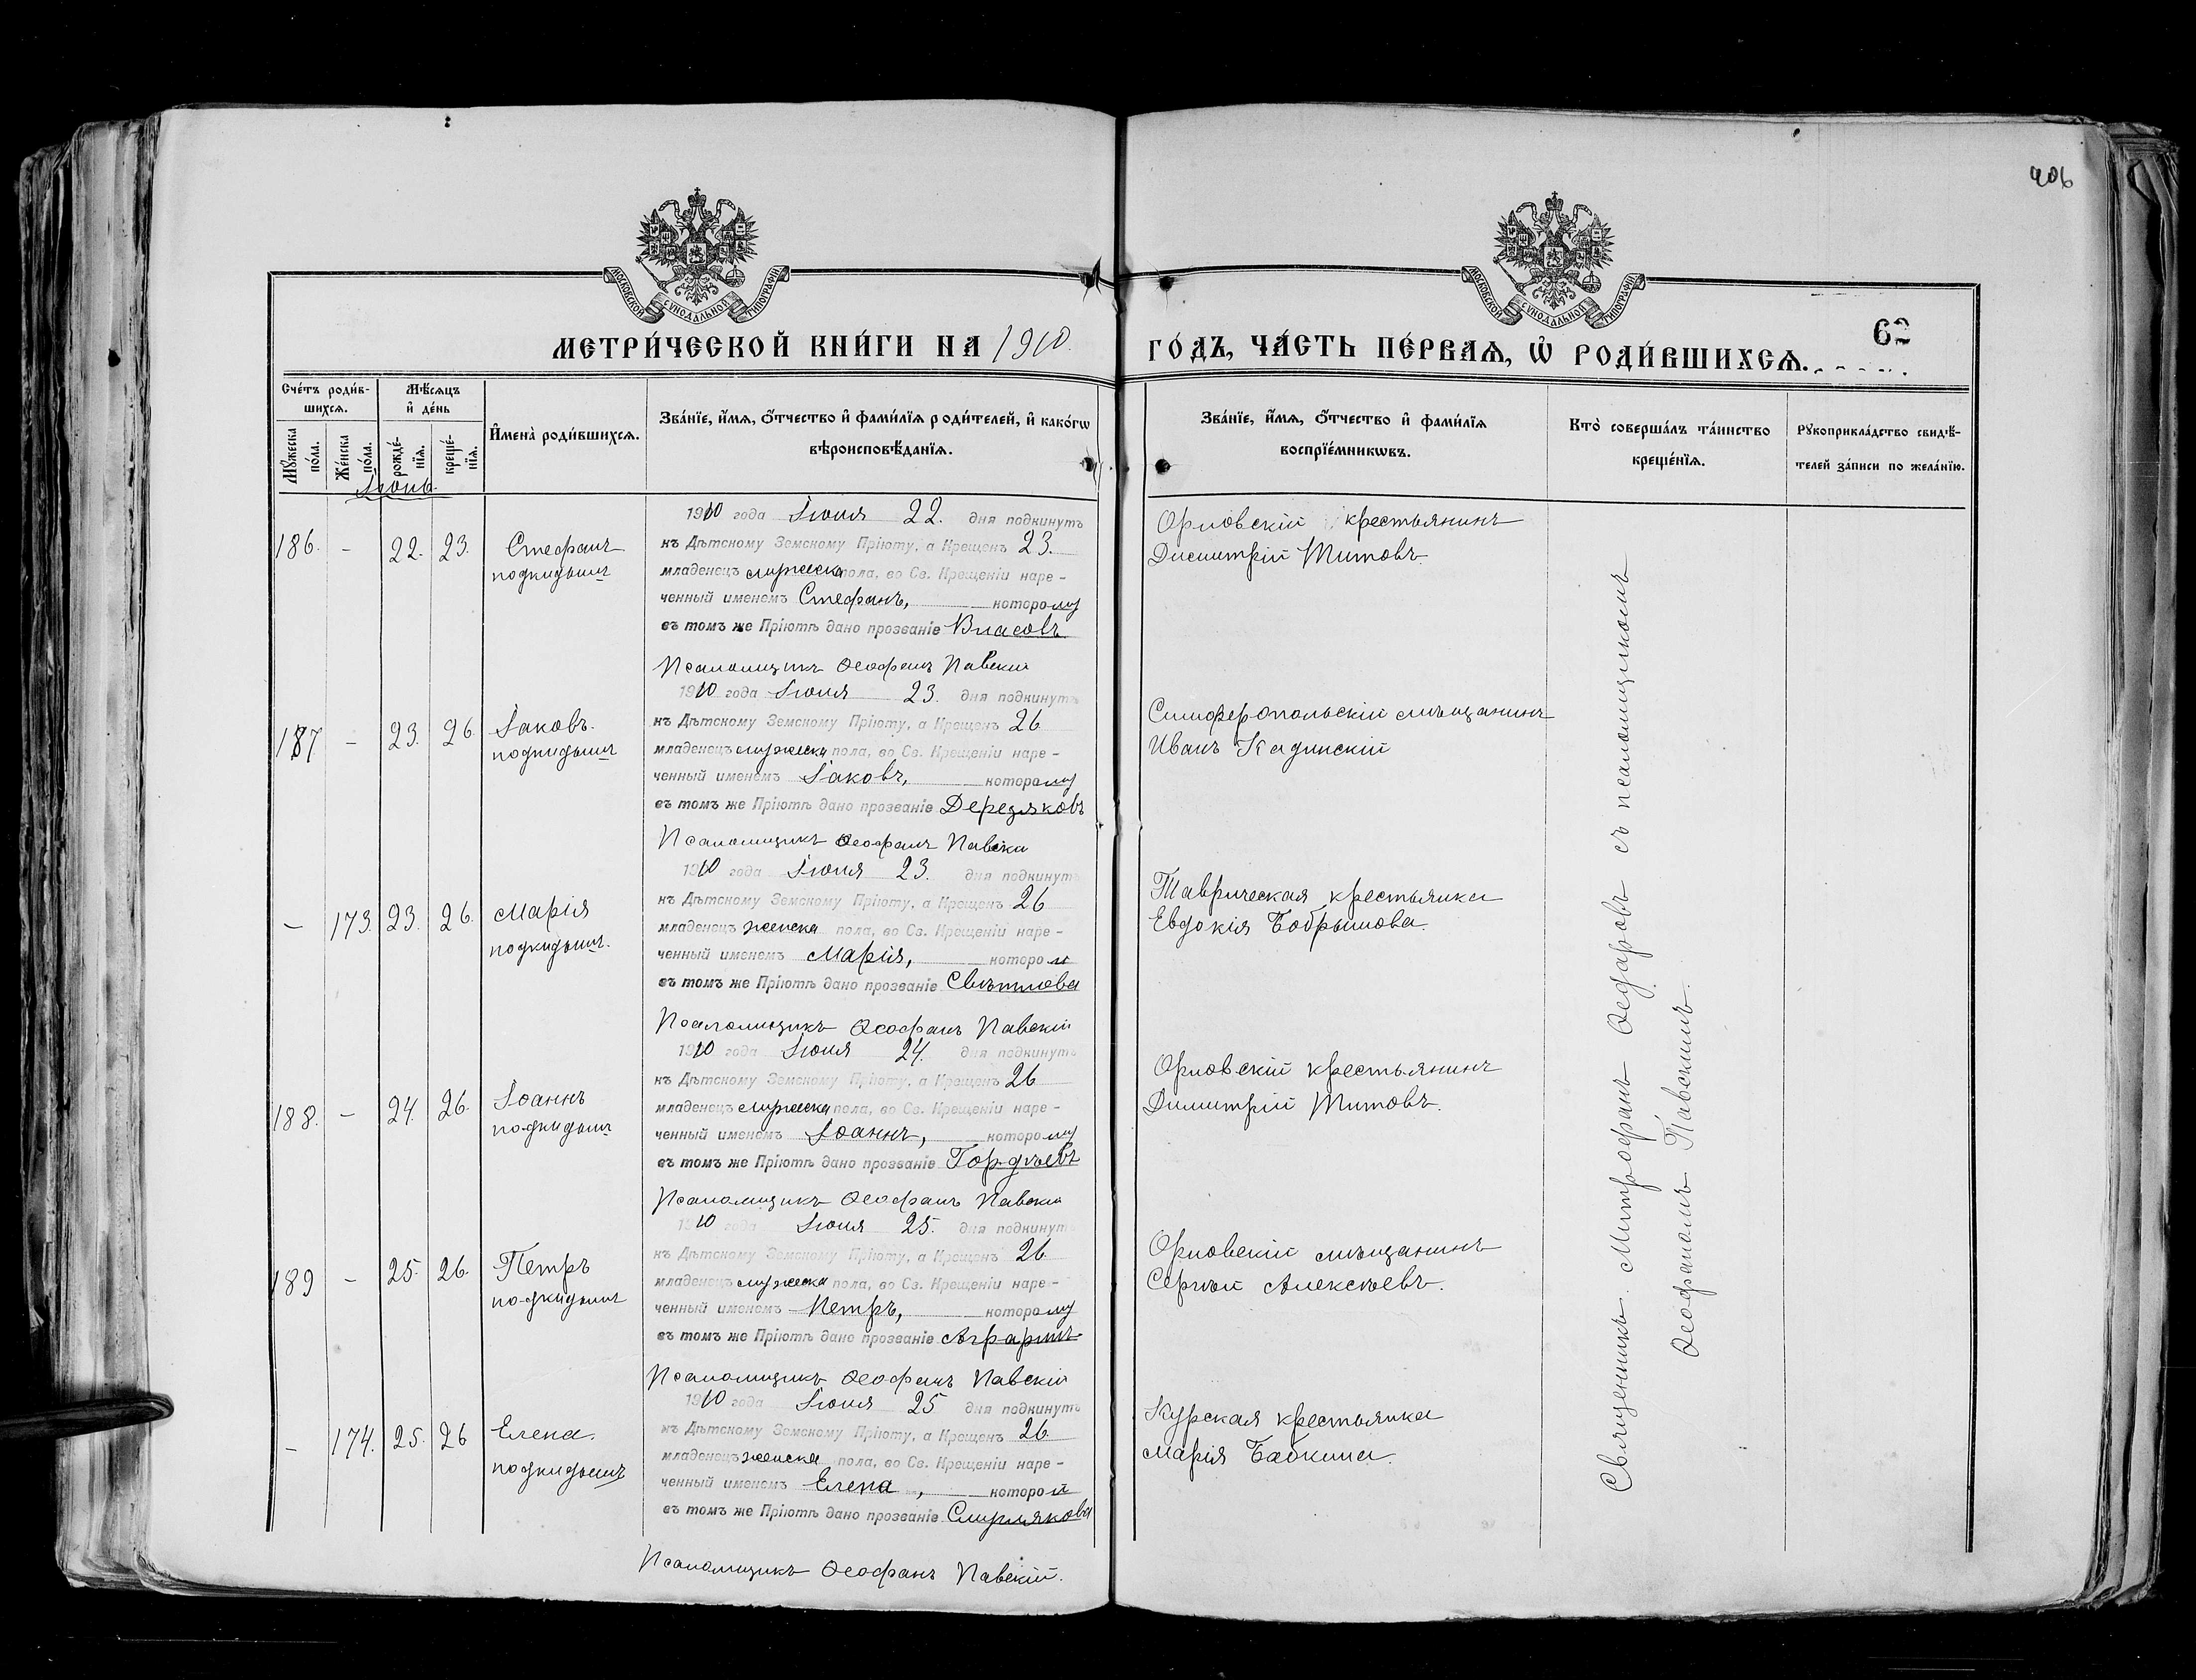 406
МОСКОВСКОЙ СѴНОДАЛЬНОЙ ТИПОГРАФІИ
МОСКОВСКОЙ СѴНОДАЛЬНОЙ ТИПОГРАФІИ
МЕТРИ́ЧЕСКОЙ КНИ́ГИ НА 1910.
ГО́ДЪ, ЧА́СТЬ ПЕ́РВАѦ, Ѡ҆ РОДИ́ВШИХСѦ.
62
Сче́тъ роди́в-
шихсѧ.
Мꙋ́жеска по́ла.
Же́нска по́ла.
Мѣ́сѧцъ
и҆ де́нь
рожде́-
нїѧ.
креще́-
нїѧ.
И҆мена̀ роди́вшихсѧ.
Зва́нїе, и҆́мѧ, ѻ҆́тчество и҆ фами́лїѧ роди́телей, и҆ како́гѡ
вѣроисповѣ́данїѧ.
Зва́нїе, и҆́мѧ, ѻ҆́тчество и҆ фами́лїѧ
воспрїе́мникѡвъ.
Кто̀ соверша́лъ та́инство
креще́нїѧ.
Рꙋкоприкла́дство свидѣ́-
телей за́писи по жела́нїю.
Іюнь
186. - 22. 23. Стефанъ
подкидышъ
1910 года Іюня 22. дня подкинутъ
къ Дѣтскому Земскому Пріюту, а Крещенъ 23.
младенецъ мужеска пола, во Св. Крещеніи наре-
ченный именемъ Стефанъ, которому
въ томъ же Пріютѣ дано прозваніе Власовъ
Псаломщикъ Ѳеофанъ Павскій
Орловскій крестьянинъ
Димитрій Титовъ.
187 - 23. 26. Іаковъ.
подкидышъ
1910 года Іюня 23. дня подкинутъ
къ Дѣтскому Земскому Пріюту, а Крещенъ 26
младенецъ мужеска пола, во Св. Крещеніи наре-
ченный именемъ Іаковъ, которому
въ томъ же Пріютѣ дано прозваніе Дерезяковъ
Псаломщикъ Ѳеофанъ Павскій
Симферопольскій мѣщанинъ
Иванъ Кадинскій
- 173. 23. 26. Марія
подкидышъ.
1910 года Іюня 23. дня подкинутъ
къ Дѣтскому Земскому Пріюту, а Крещенъ 26
младенецъ женска пола, во Св. Крещеніи наре-
ченный именемъ Марія, которой
въ томъ же Пріютѣ дано прозваніе Свѣтлова
Псаломщикъ Ѳеофанъ Павскій
Таврическая крестьянка
Евдокія Бобрышова.
188. - 24. 26. Іоаннъ
подкидышъ
1910 года Іюня 24. дня подкинутъ
къ Дѣтскому Земскому Пріюту, а Крещенъ 26
младенецъ мужеска пола, во Св. Крещеніи наре-
ченный именемъ Іоаннъ, которому
въ томъ же Пріютѣ дано прозваніе Гордѣевъ
Псаломщикъ Ѳеофанъ Павскій
Орловскій крестьянинъ
Димитрій Титовъ.
189 - 25. 26. Петръ
подкидышъ
1910 года Іюня 25. дня подкинутъ
къ Дѣтскому Земскому Пріюту, а Крещенъ 26
младенецъ мужеска пола, во Св. Крещеніи наре-
ченный именемъ Петръ, которому
въ томъ же Пріютѣ дано прозваніе
Псаломщикъ Ѳеофанъ Павскій
Орловскій мѣщанинъ
Сергѣй Алексѣевъ.
- 174. 25. 26 Елена.
подкидышъ
1910 года Іюня 25 дня подкинутъ
къ Дѣтскому Земскому Пріюту, а Крещенъ 26
младенецъ женска пола, во Св. Крещеніи наре-
ченный именемъ Елена, которой
въ томъ же Пріютѣ дано прозваніе Смирнякова
Псаломщикъ Ѳеофанъ Павскій.
Курская крестьянка
Марія Бабкина.
Священникъ Митрофанъ съ псаломщикомъ
Ѳеофаномъ Павскимъ.